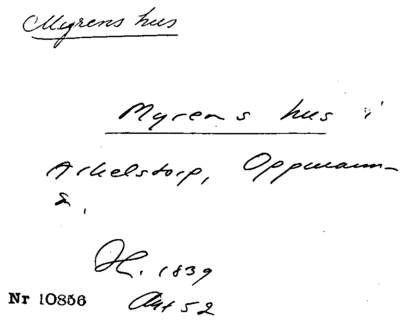 Myrens hus
Myrens hus i
Arkelstorp, Oppmann-
a.
H. 1839
Nr 10856
Akt 52